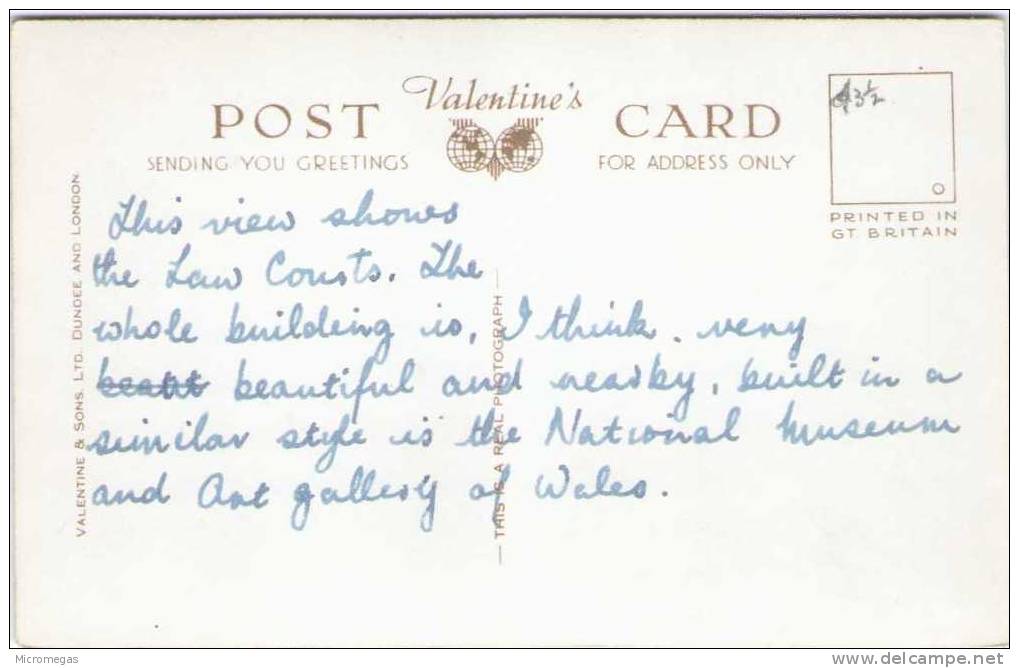 Valentine's
POST CARD
SENDING YOU GREETINGS
FOR ADDRESS ONLY
3½
PRINTED IN
GT. BRITAIN
VALENTINE & SONS, LTD. DUNDEE AND LONDON.
THIS IS A REAL PHOTOGRAPH
This view shows
the Law Courts. The
whole building is, I think, very
beautiful and nearby, built in a
similar style is the National Museum
and Art gallery of Wales.
Micromegas
delcampe.net